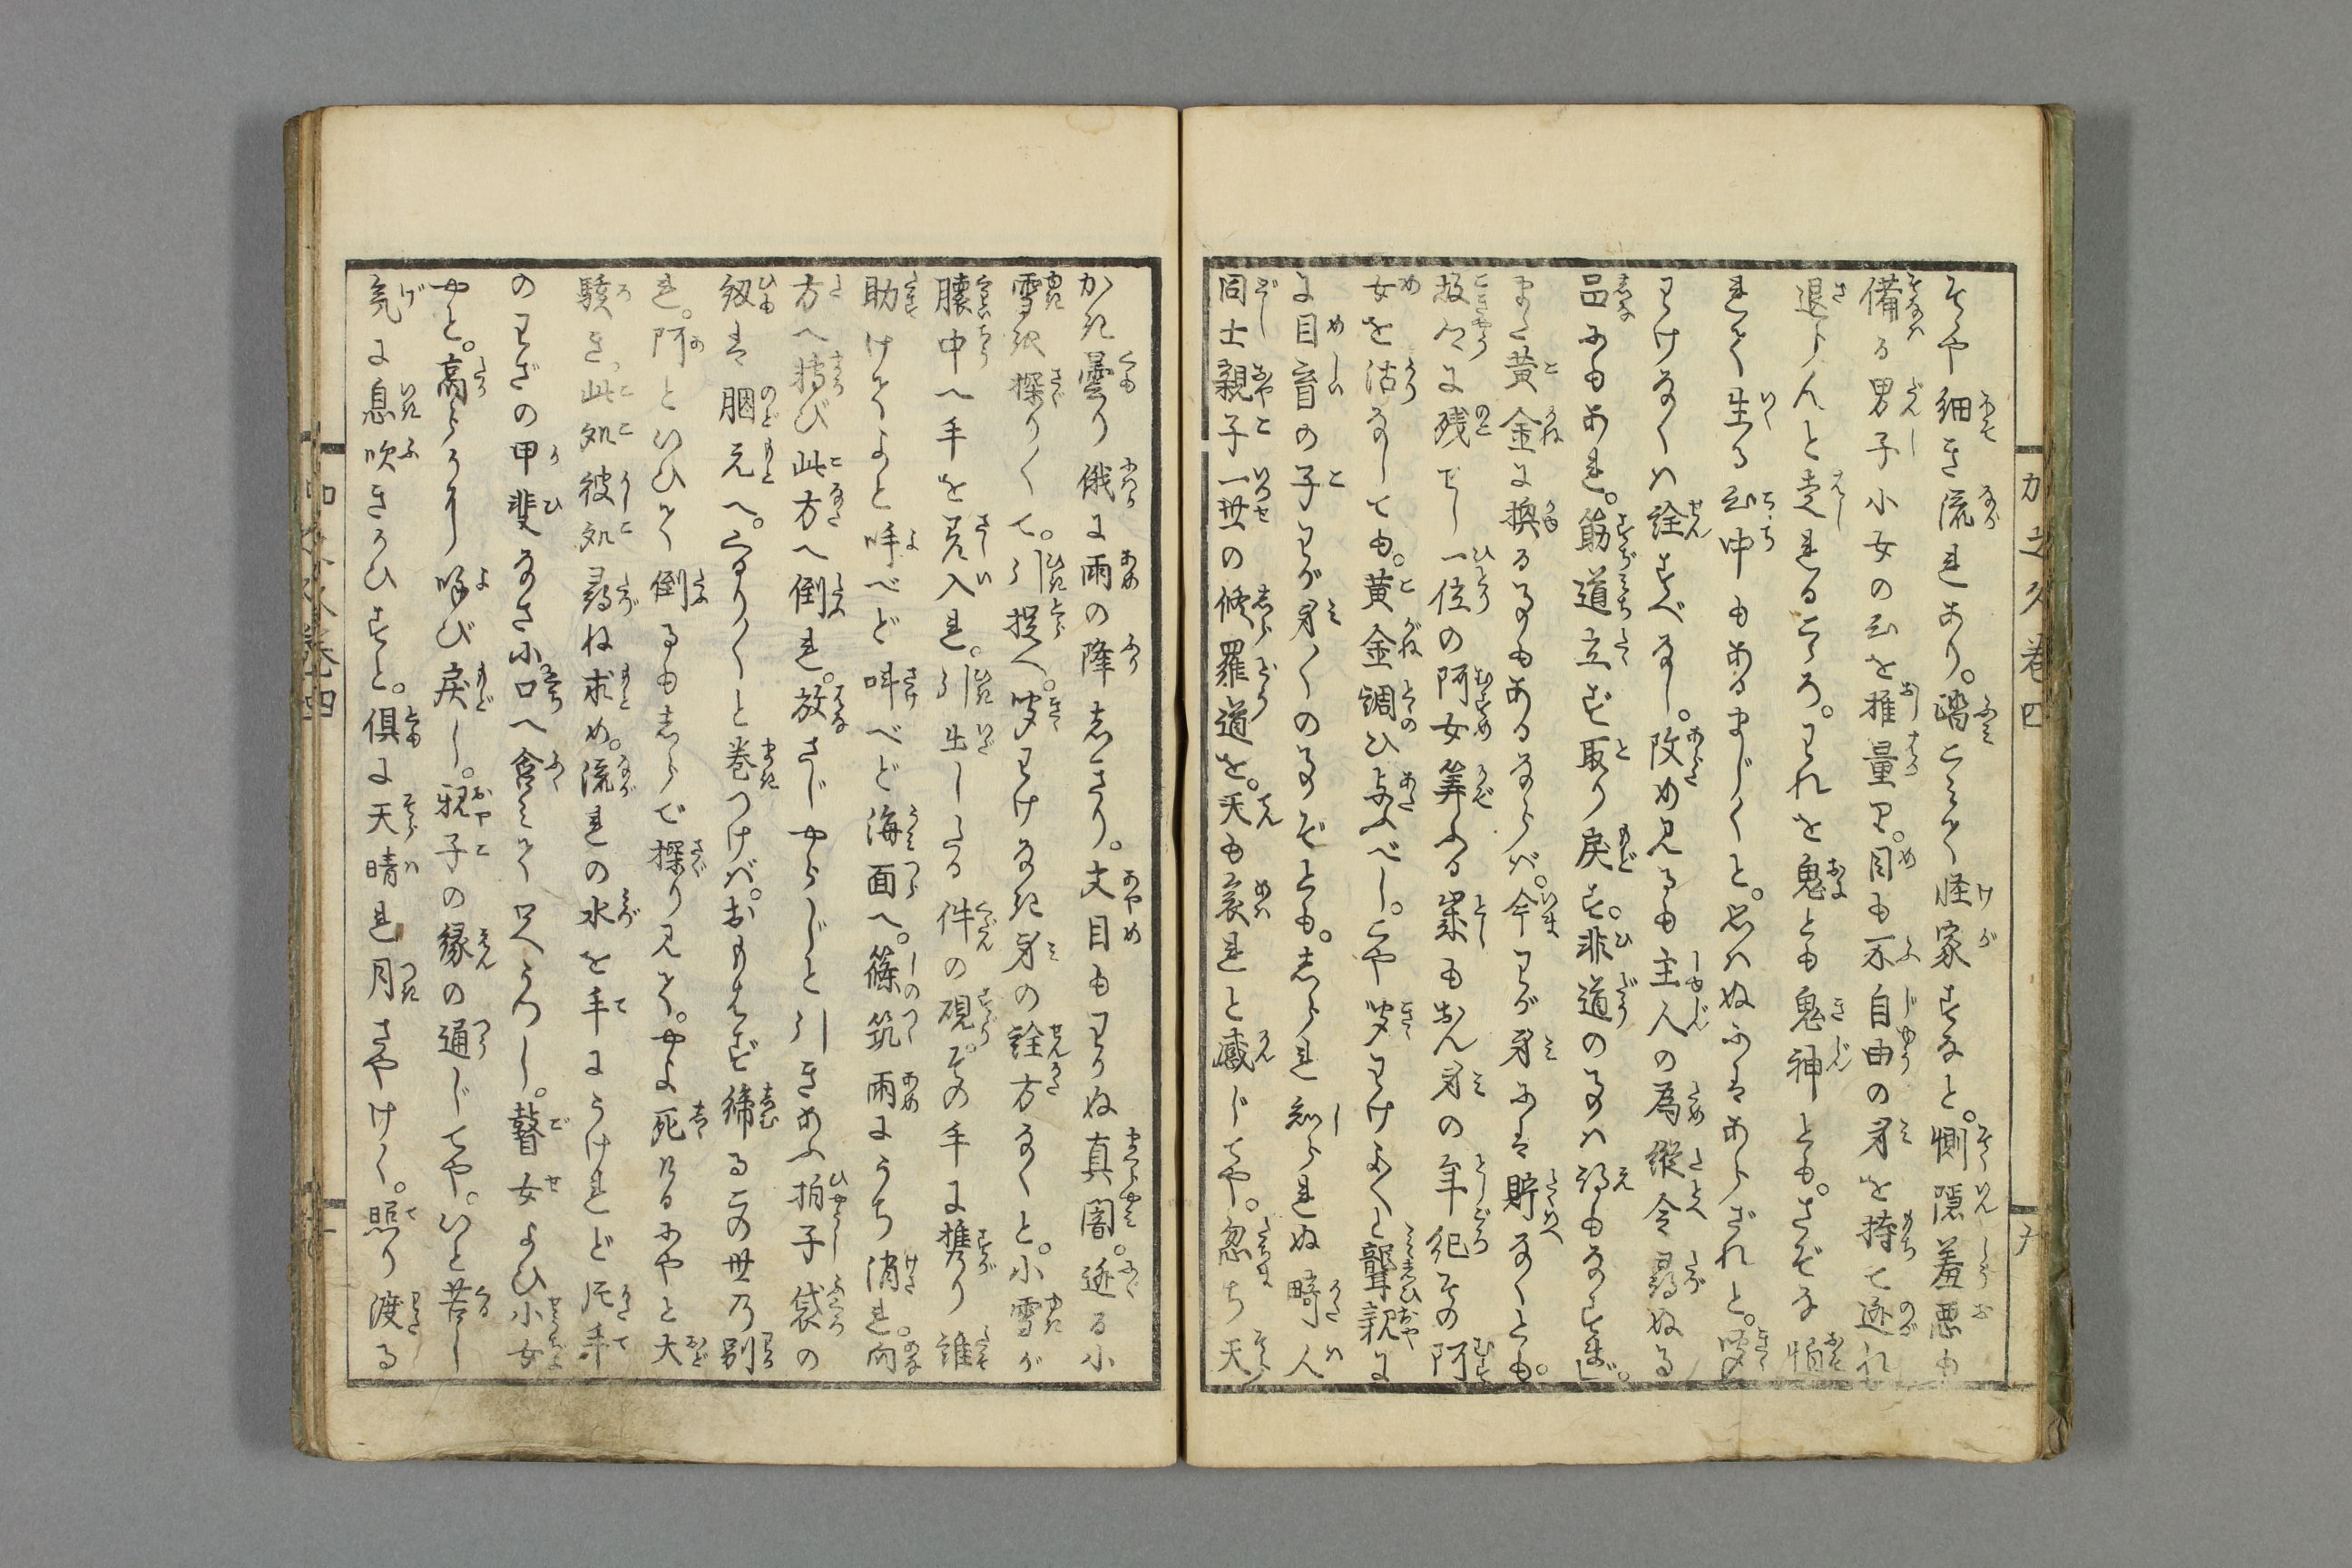 そや細き流れあり。踏こえて怪家すなと。惻隠羞悪も
備る男子小女の心を推量り。目も不自由の身を持て逃れ
退らんと走れるころ。われを鬼とも鬼神とも。さぞな怕
れて生る心中もあるまじくと。思はぬにはあらざれと。咲
わけなくは詮すべなし。改め見るも主人の為縦令尋ぬる
品にもあれ。筋道立ず取り戻す。非道の事は得もなすまじ。
まして黄金に換る事もあるならば。今わが身には貯なくとも。
故郷に残せし一位の阿女筭ふる業も おん身の年紀その阿
女を沽なしても。黄金調ひ与ふべし。こや咲わけよくと聾親に
に目盲の子わが身くの事ぞとも。しられ知られぬ畸人
同士親子一世の修羅道を。天も哀れと感じてや。忽ち天
かき曇り俄に雨の降しきり。文目もわかぬ真闇。逃る小
雪を探りくて。引捉へ。咲わけなき身の詮方なくと。小雪が
懐中へ手を差入れ。引出したる件の硯。その手に携り誰
助けてよと呼べど叫べど海面へ。篠筑雨にうち消れ。向
方へ轉び此方へ倒れ。放さじやらじと引きあふ拍子袋の
紐は胭元へ。くるりくと巻つけば。おもはず締るこの世の別
れ。阿といひて倒るもしらで探り見て。やよ死けるにやと大
駭き。此処彼処尋ね求め。流れの水を手にうけれど片手
のわざの甲斐なさ小口へ含みて只うつし。瞽女よひ小女
やと。高らかに呼び戻し。親子の縁の通じてや。いと苦し
気に息吹きかひすと。倶に天晴れ月さやけく。照り渡る